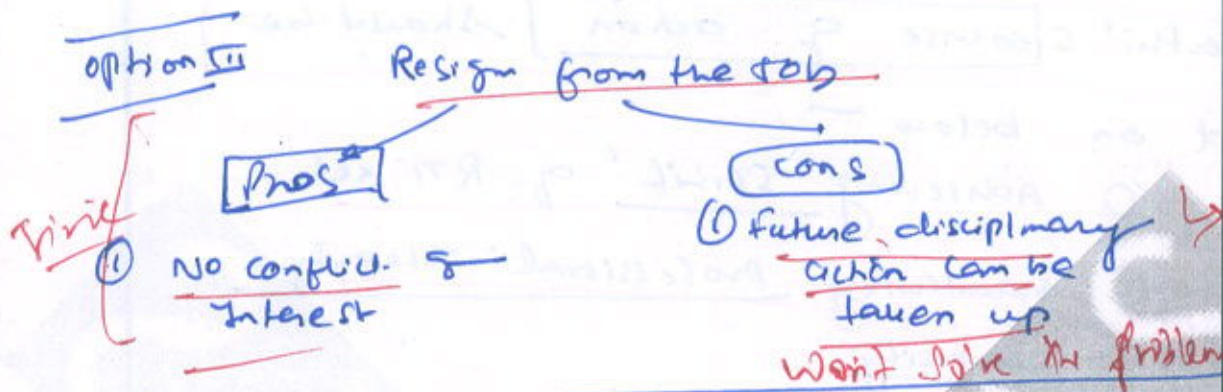 option III
Resign from the Job
Pros
cons
① No conflict of
Interest
① future disciplinary
action can be
taken up
Won't Solve the problem